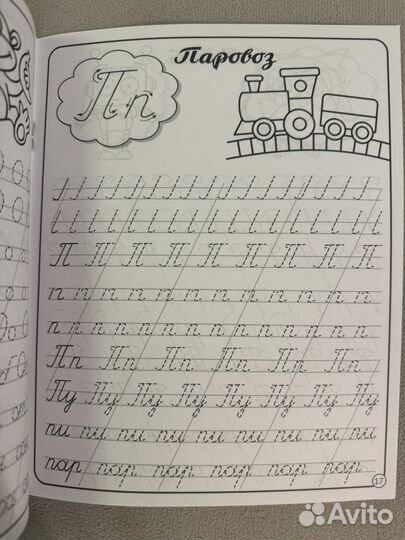 Паровоз
Пп
П П П П П П П П
п п п п п п п п п п п п п
п п п п п п п п п п п п п
Пп Пп Пп Пп Пп Пп
Пу Пу Пу Пу Пу Пу Пу
пи пи пи пи пи пи пи пи
пар пар пар пар пар пар
17
Avito